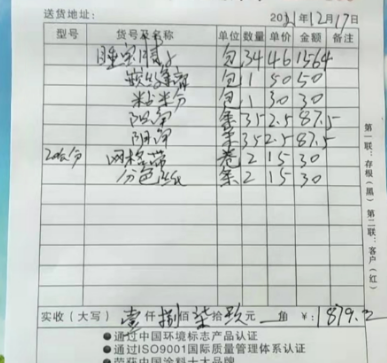 送货地址: 2021年12月17日
型号 货号及名称 单位 数量 单价 金额 备注
包 34 46 1564
包 1 50 50
粘米分 包 1 30 30
阳角 条 35 2.5 87.5
阴角 条 35 2.5 87.5
网格带 卷 2 15 30
分色纸 条 2 15 30
第一联:存根(黑) 第二联:客户(红)
实收(大写) 壹仟捌佰柒拾玖元 角 ¥: 1879.
●通过中国环境标志产品认证
●通过ISO9001国际质量管理体系认证
●荣获中国涂料十大品牌